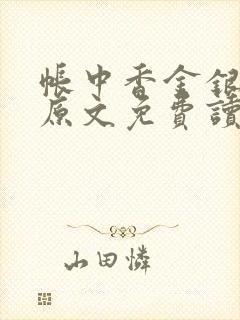 帳中香金銀
原文免費讀
山田憐